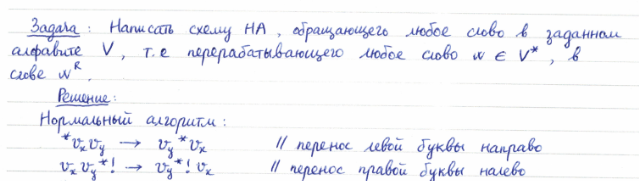 Задача: Написать схему НА, обращающего любое слово в заданном
алфавите V, т.е перерабатывающего любое слово w ∈ V*, в
слове w^R.
Решение:
Нормальный алгоритм:
*v_x v_y → v_y *v_x // перенос левой буквы направо
v_x v_y *! → v_y *! v_x // перенос правой буквы налево